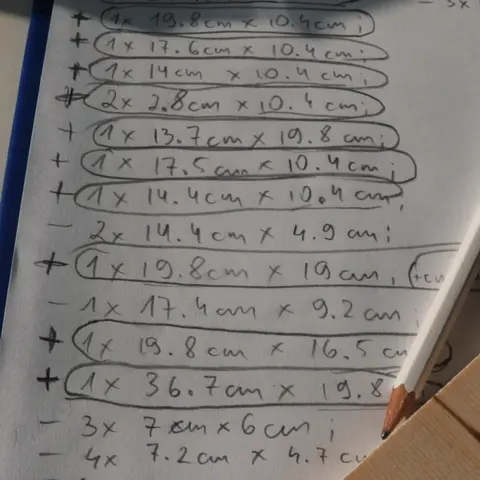 - 3x
+ 1x 19.8cm x 10.4cm;
+ 1x 17.6cm x 10.4cm;
+ 1x 14cm x 10.4cm;
+ 2x 2.8cm x 10.4cm;
+ 1x 13.7cm x 19.8cm;
+ 1x 17.5cm x 10.4cm;
+ 1x 14.4cm x 10.4cm,
- 2x 14.4cm x 4.9cm;
+ 1x 19.8cm x 19cm,
- 1x 17.4cm x 9.2cm;
+ 1x 19.8cm x 16.5
+ 1x 36.7cm x 19.8
- 3x 7cm x 6cm;
- 4x 7.2cm x 4.7